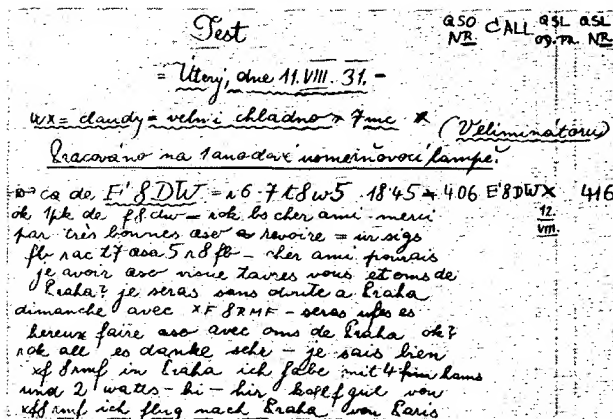 Test QSO NR CALL QSL OD. PR. QSL NR
= Úterý, dne 11. VIII. 31. =
wx = claudy = velmi chladno = 7mc * (V eliminátoru)
Pracováno na 1 anodové usměrňovací lampě!
cq de F'8DW = r6 - 7 t8 w5 18·45 = 406 F'8DW X 416
ok 1pk de f8dw = rok bs cher ami - merci 12. VIII.
par très bonnes qso a revoire = ur sigs
fb rac t7 qsa 5 r8 fb - cher ami
je avoir qso vous et oms de
Praha? je seras sans doute a Praha
dimanche avec XF8RMF - seras es
hereux faire qso avec oms de Praha ok?
rok all es danke sehr - je sais bien
xf8rmf in Praha ich habe mit hams
und 2 watts - hi - hir von
xf8rmf ich flug nach Praha von Paris